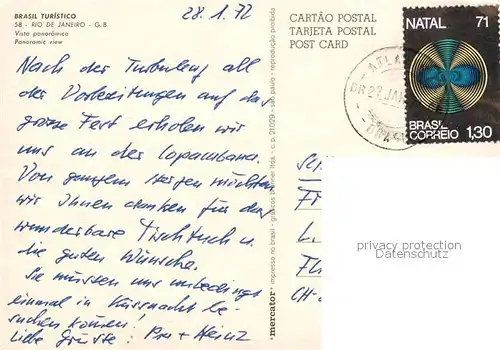 BRASIL TURÍSTICO
58 - RIO DE JANEIRO - G.B.
Vista panorâmica
Panoramic view
28.1.72
CARTÃO POSTAL
TARJETA POSTAL
POST CARD
NATAL 71
BRASIL
CORREIO 1,30
Nach der Turbulenz all
der Vorbereitungen auf das
grosse Fest erholen wir
uns an der Copacabana.
Von ganzem Herzen möchten
wir Ihnen danken für das
wunderbare Tischtuch u.
die guten Wünsche.
Sie müssen uns unbedingt
einmal in Küssnacht be-
suchen kommen!
Liebe Grüsse: + Heinz
mercator impresso no brasil - gráficos brunner ltda. - c. p. 21.029 - são paulo - reprodução proibida
CH-
privacy protection
Datenschutz